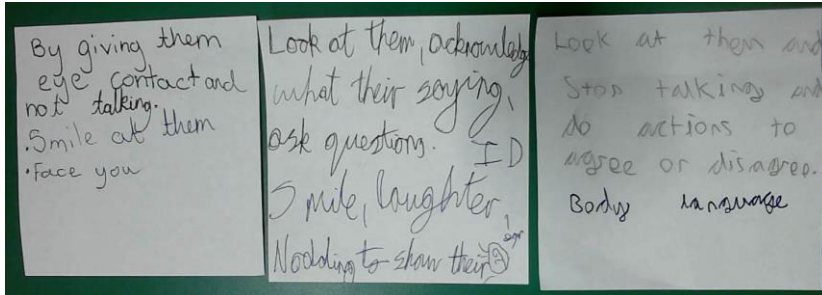 By giving them
eye contact and
not talking.
.Smile at them
•Face you
Look at them, acknowledge
what their saying,
ask questions.
ID
Smile, laughter,
Nodding to show their
Look at them and
Stop talking and
do actions to
agree or disagree.
Body language